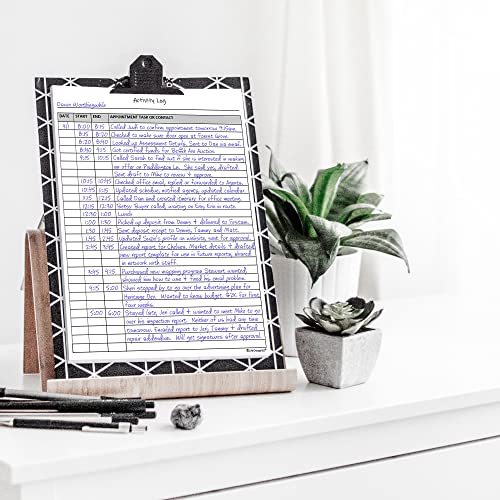 Activity Log
Devon Worthingwhile
DATE START END APPOINTMENT TASK OR CONTACT
9/1 8:00 8:15 Called Judi to confirm appointment tomorrow 9:15am.
8:15 8:20 Checked to make sure door open at Forest Grove.
8:20 8:40 Looked up Assessment Details. Sent to Dax via email.
8:40 9:15 Got certified funds for Booth Ave Auction.
9:15 10:15 Called Sarah to find out if she is interested in making
an offer on Paddington Ln. She said yes, drafted.
Sent draft to Max to review + approve.
10:15 10:45 Checked office email, replied or forwarded to Agents.
10:45 11:15 Updated schedule, notified agents, updated calendar.
11:15 12:15 Called Dan and created itinerary for office meeting.
12:15 12:30 Betsy Buyer called, waiting on Eric, Eric in route.
12:30 1:00 Lunch
1:00 1:30 Picked up deposit from Dennis + delivered to Firsteam.
1:30 1:45 Sent deposit receipt to Dennis, Tammy and Matt.
1:45 2:45 Updated Suzie's profile on website, sent for approval.
2:45 3:45 Created report for Chelsea. Market details + drafted
new report template for use in future reports, shared
in network with staff.
3:45 4:15 Purchased new mapping program Stewart wanted,
showed him how to use + fixed his email problem.
4:15 5:00 Sheri stopped by to go over the advertising plan for
Heritage Dev. Wanted to know budget. $12K for first
four weeks.
5:00 6:00 Stayed late, Jen called + wanted to meet Mike to go
over his inspection report. Neither of us had any time
tomorrow. Emailed report to Jen, Tammy + drafted
repair addendum. Will get signatures after approval.